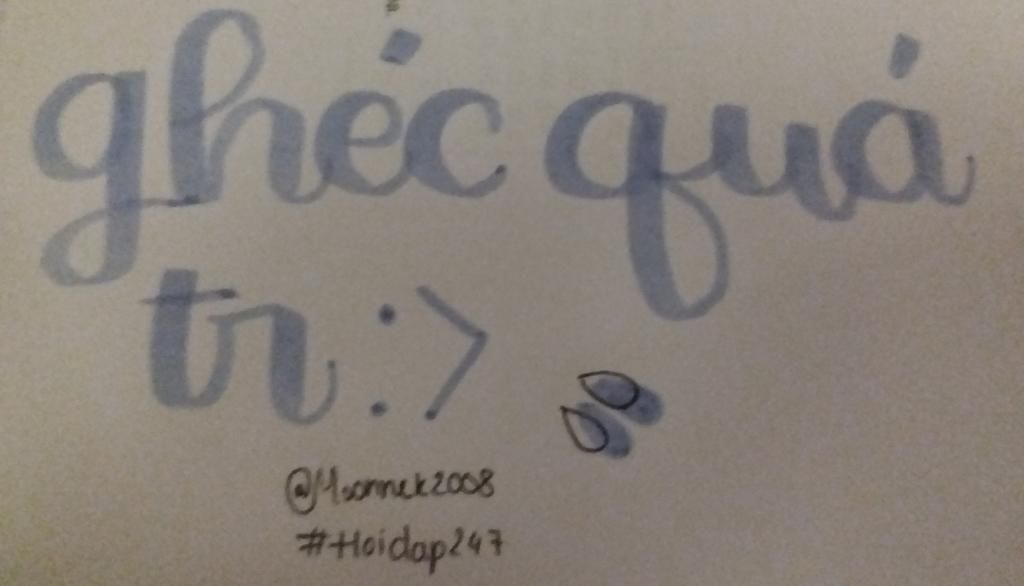 ghéc quá
tr :>
@Msonnek2008
#Hoidap247